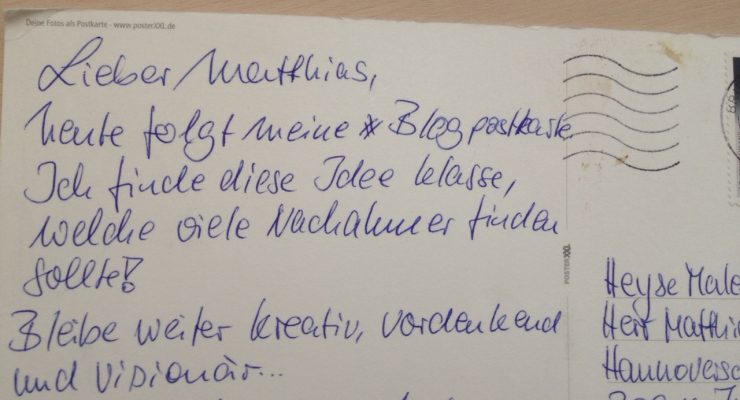 Deine Fotos als Postkarte - www.posterXXL.de
Lieber Matthias,
heute folgt meine Blogpostkarte
Ich finde diese Idee klasse,
welche viele Nachahmer finden
sollte!
Bleibe weiter kreativ, vordenkend
und visionär...
POSTERXXL
Heyse Male
Herr Matthi
Hannoversc